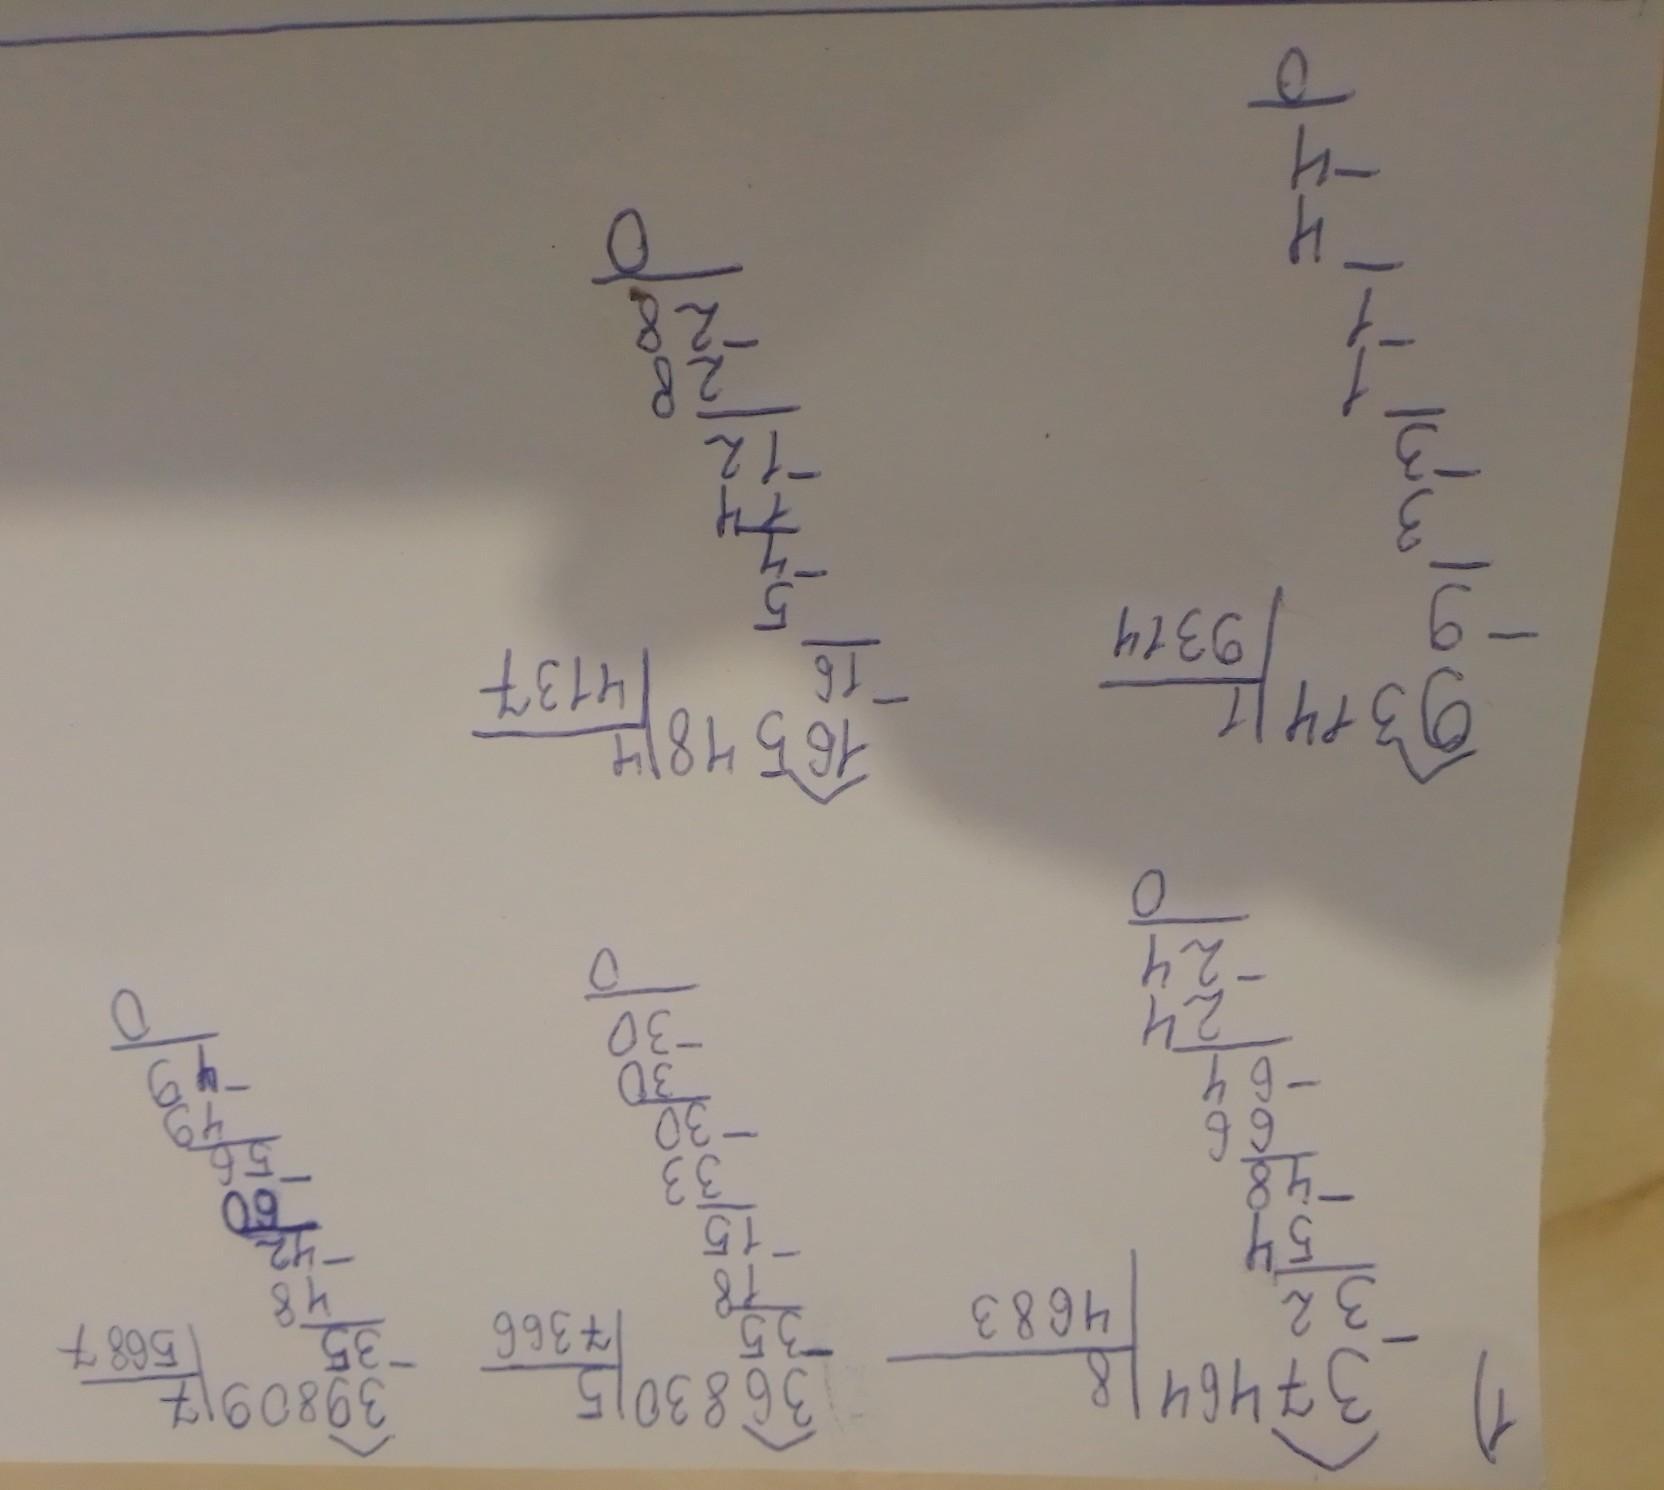 1)
37464|8
-32|4683
54
-48
66
-64
24
-24
0
36830|5
-35|7366
18
-15
33
-30
30
-30
0
39809|7
-35|5687
48
-42
60
-56
49
-49
0
9314|1
-9|9314
3
-3
1
-1
4
-4
0
16548|4
-16|4137
5
-4
14
-12
28
-28
0